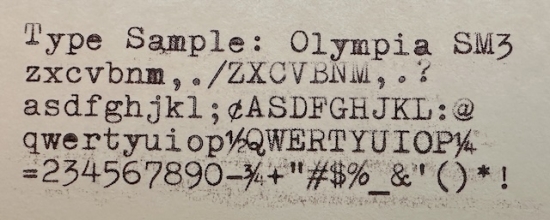 Type Sample: Olympia SM3
zxcvbnm,./ZXCVBNM,.?
asdfghjkl;¢ASDFGHJKL:@
qwertyuiop½QWERTYUIOP¼
=234567890-¾+"#$%_&"()*!